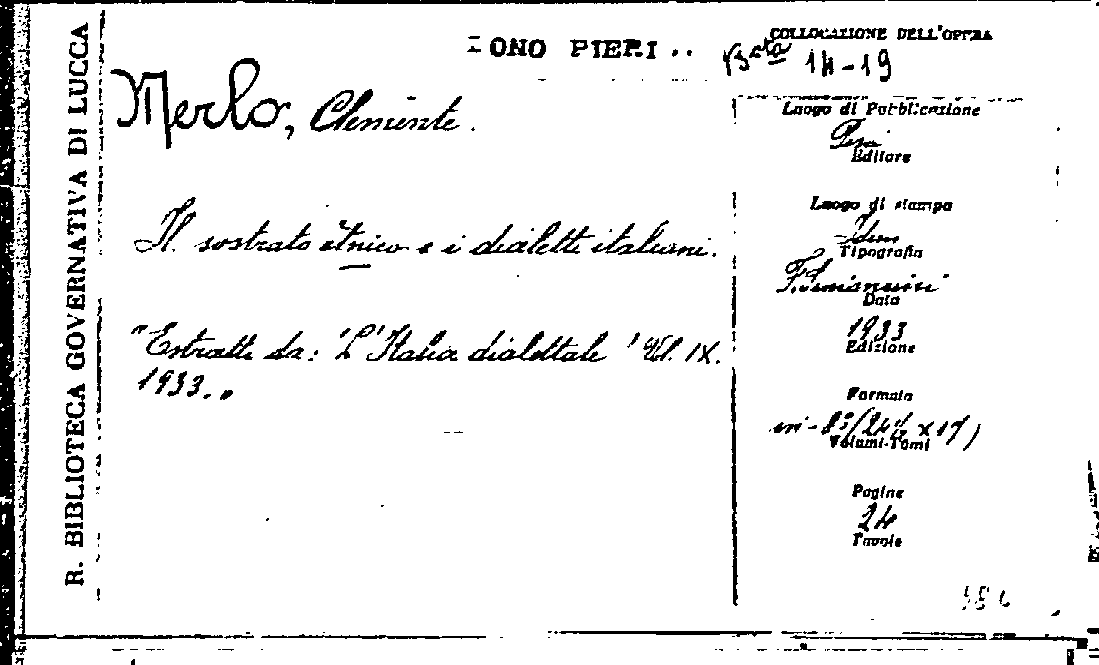 R. BIBLIOTECA GOVERNATIVA DI LUCCA
ONO PIERI ..
COLLOCAZIONE DELL'OPERA
Bta 14-19
Merlo, Clemente.
Il sostrato ètnico e i dialetti italiani.
"Estratto da: 'L'Italia dialettale' Vol. IX.
1933.„
Luogo di Pubblicazione
Pisa
Editore
Luogo di stampa
Idem
Tipografia
F. Simoncini
Data
1933
Edizione
Formato
in-8°(24½ x 17)
Volumi-Tomi
Pagine
24
Tavole